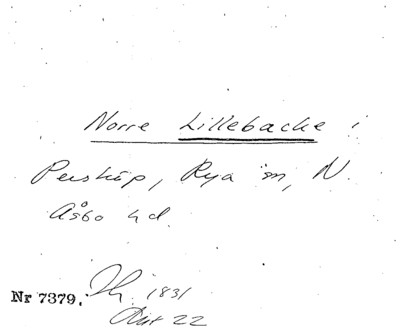 Norre Lillebacke i
Perstúp, Rya sn, N.
Åsbo hd.
Nr 7379. 1831
Akt 22